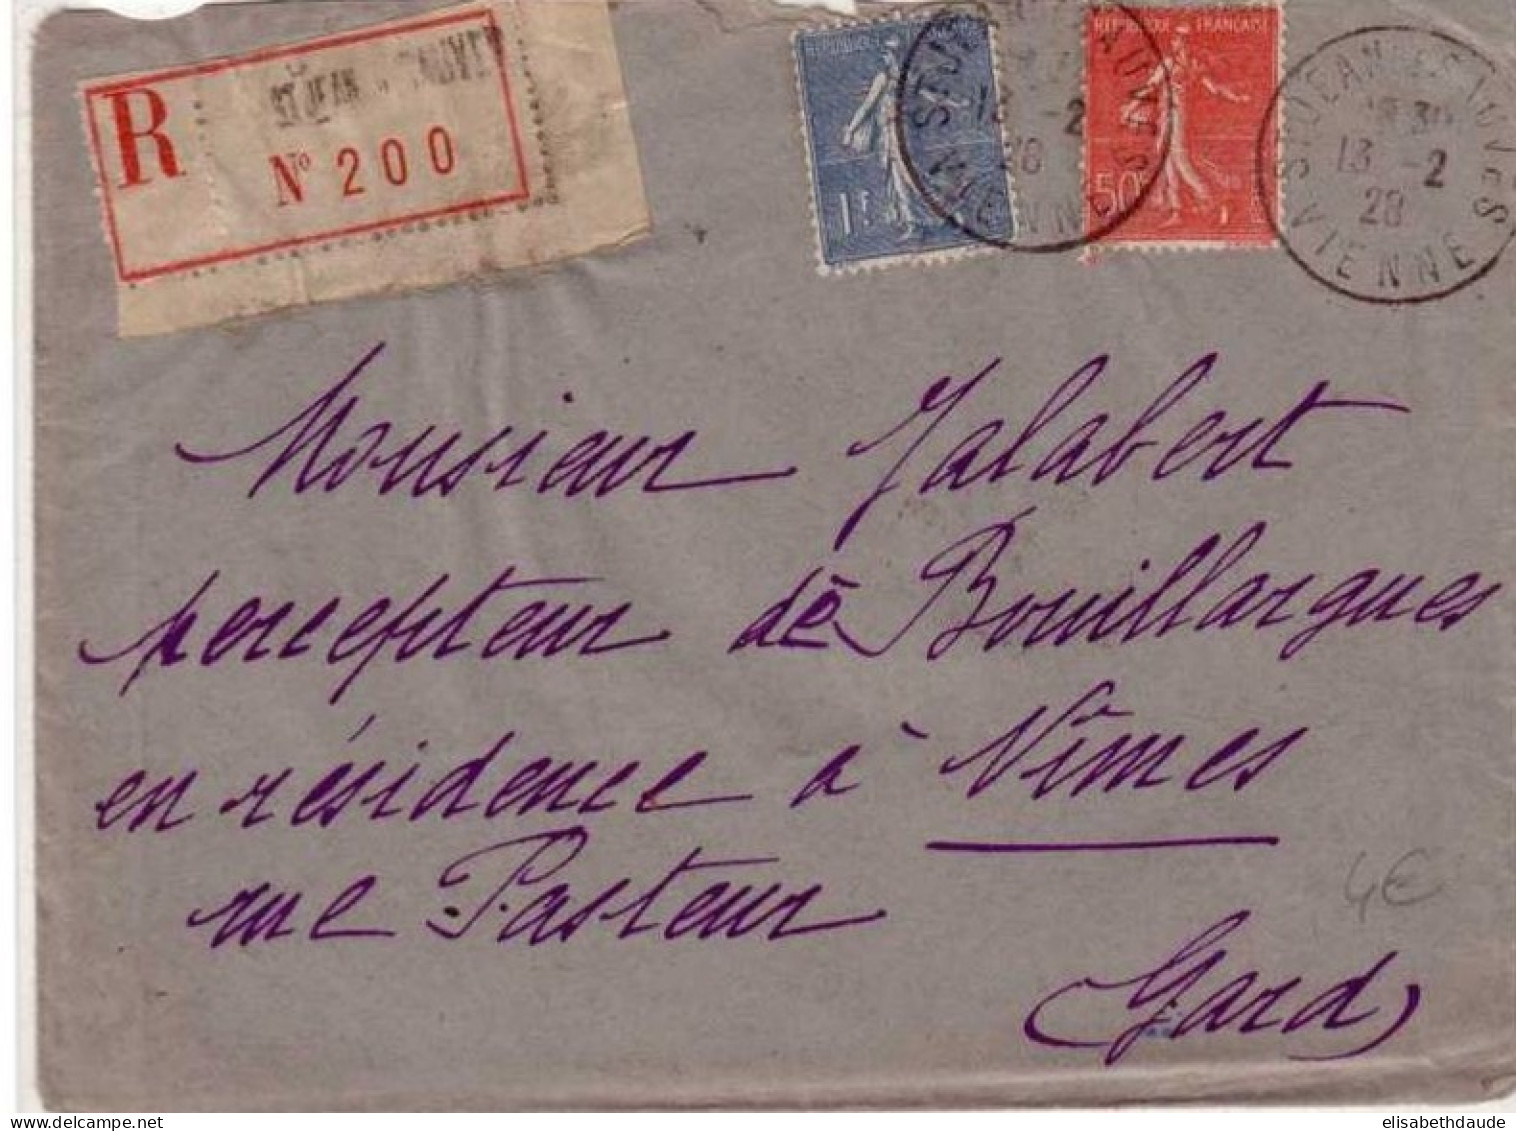 R
ST JEAN
N° 200
REPUBLIQUE
1F
REPUBLIQUE FRANÇAISE
50
13 -2
28
VIENNE
13 -2
28
VIENNE
Monsieur Jalabert
percepteur de Bouillargues
en résidence à Nîmes
rue Pasteur
(Gard)
4€
delcampe.net
elisabethdaude